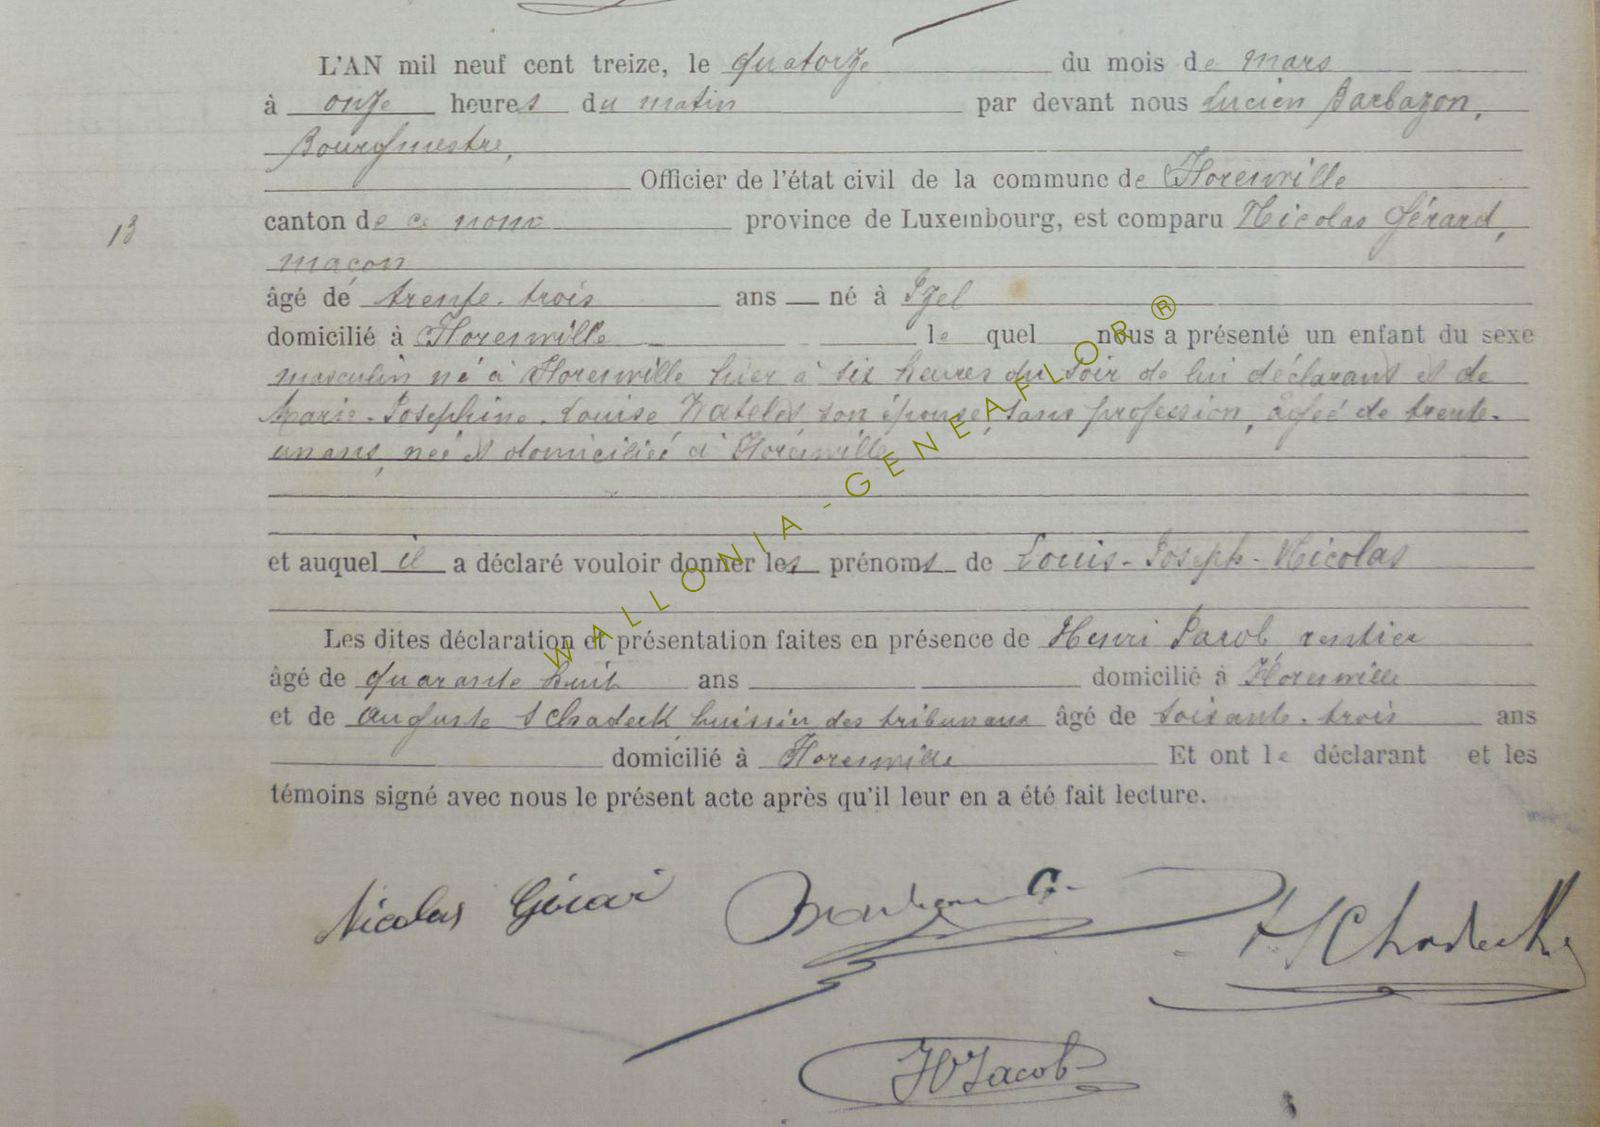 L'AN mil neuf cent treize, le quatorze du mois de mars
à onze heures du matin par devant nous Lucien Barbazon,
Bourgmestre,
Officier de l'état civil de la commune de Florenville
13
canton de ce nom province de Luxembourg, est comparu Nicolas Gérard,
maçon
âgé de trente-trois ans né à Izel
domicilié à Florenville le quel nous a présenté un enfant du sexe
masculin né à Florenville hier à six heures du soir de lui déclarant et de
Marie-Josephine-Louise son épouse, sans profession, âgée de trente-
un ans, née et domiciliée à Florenville
et auquel il a déclaré vouloir donner les prénoms de Louis-Joseph-Nicolas
Les dites déclaration et présentation faites en présence de Henri Jacob rentier
âgé de quarante huit ans domicilié à Florenville
et de Auguste Schadeck huissier des tribunaux âgé de soixante-trois ans
domicilié à Florenville Et ont le déclarant et les
témoins signé avec nous le présent acte après qu'il leur en a été fait lecture.
Nicolas Gérard
Schadeck
H Jacob
WALLONIA-GENEAFLOR ®